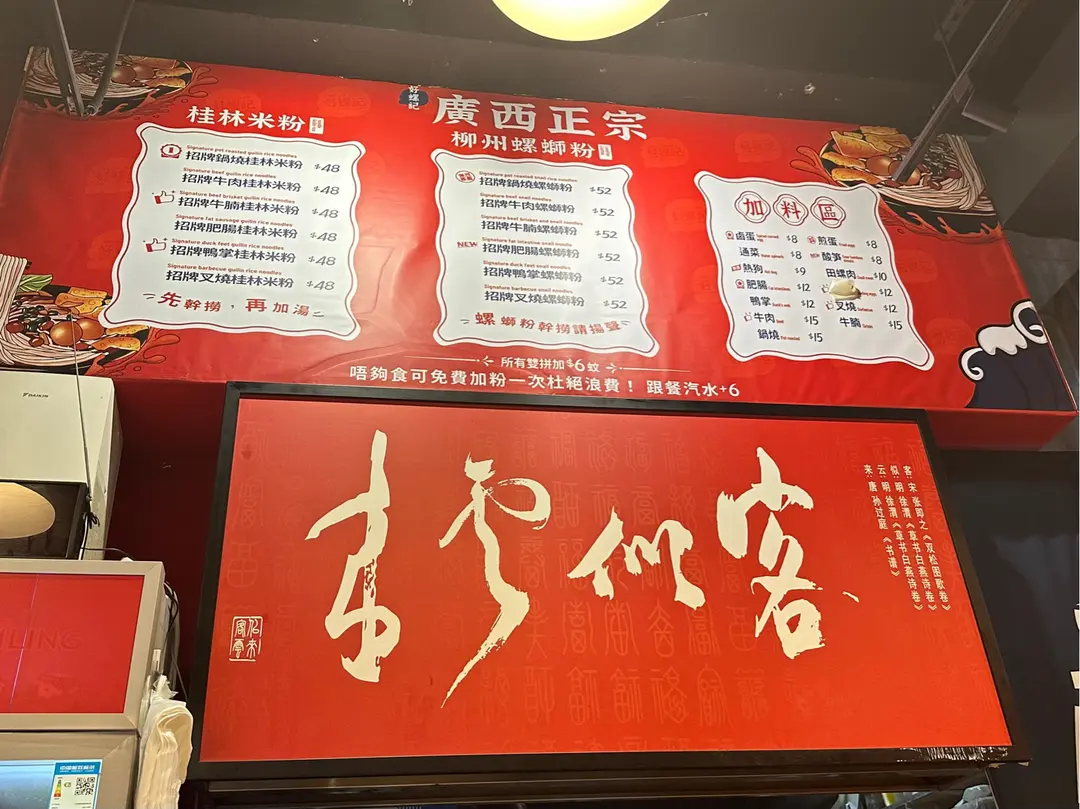 好螺記
廣西正宗
桂林米粉
Signature pot roasted guilin rice noodles
招牌鍋燒桂林米粉 $48
Signature beef guilin rice noodles
招牌牛肉桂林米粉 $48
Signature beef brisket guilin rice noodles
招牌牛腩桂林米粉 $48
Signature fat sausage guilin rice noodles
招牌肥腸桂林米粉 $48
Signature duck feet guilin rice noodles
招牌鴨掌桂林米粉 $48
Signature barbecue guilin rice noodles
招牌叉燒桂林米粉 $48
先幹撈，再加湯
柳州螺螄粉
Signature pot roasted snail rice noodles
招牌鍋燒螺螄粉 $52
Signature beef snail noodles
招牌牛肉螺螄粉 $52
Signature beef brisket and snail noodles
招牌牛腩螺螄粉 $52
NEW
Signature fat intestine snail noodls
招牌肥腸螺螄粉 $52
Signature duck feet snail noodles
招牌鴨掌螺螄粉 $52
Signature barbecue snail noodles
招牌叉燒螺螄粉 $52
螺螄粉幹撈請揚聲
加料區
鹵蛋 $8 煎蛋 $8
通菜 $8 酸筍 $8
熱狗 $9 田螺肉 $10
肥腸 $12 $12
鴨掌 $12 叉燒 $12
牛肉 $15 牛腩 $15
鍋燒 Pot roasted $15
所有雙拼加$6蚊
唔夠食可免費加粉一次杜絕浪費！ 跟餐汽水+6
DAIKIN
客似雲來
客：宋 张即之《双松图歌卷》
似：明 徐渭《草书白燕诗卷》
云：明 徐渭《草书白燕诗卷》
来：唐 孙过庭《书谱》
LING